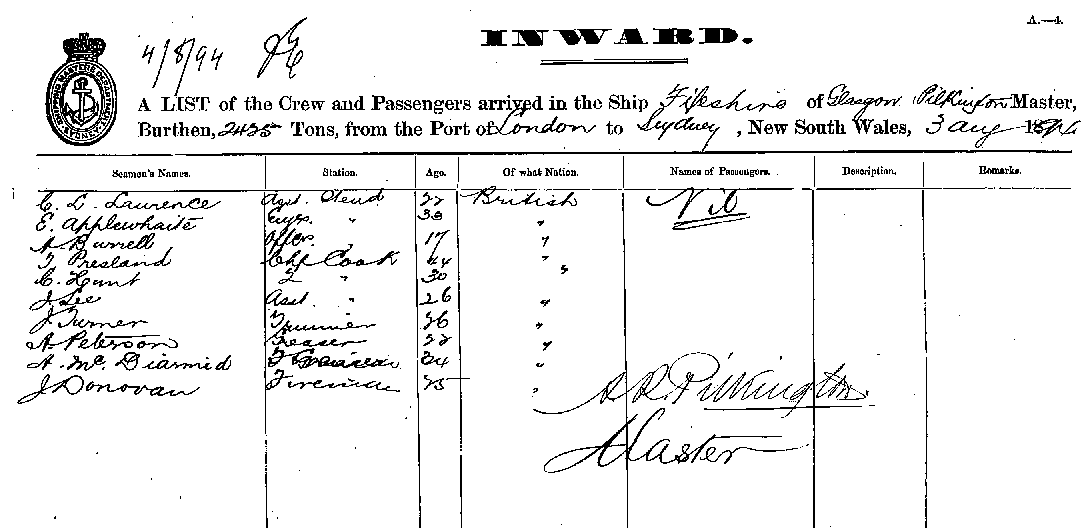 A.—4.
4/8/94
INWARD.
A LIST of the Crew and Passengers arrived in the Ship Fifeshire of Glasgow Pilkington Master,
Burthen, 2435 Tons, from the Port of London to Sydney, New South Wales, 3 Aug 1894
Seamen's Names. Station. Age. Of what Nation. Names of Passengers. Description. Remarks.
C. L. Laurence Asst. Steud 22 British Nil
E. Applewhaite Engrs. " 30 "
A Burrell Offrs. 17 "
T Presland Chf Cook 44 "
C. Hunt 2 " 30 "
J. Lee Asst. " 26 "
J. Turner 26 "
A. Peterson Greaser 22 "
A. Mc. Diarmid 24 "
J Donovan Fireman 25 "
A R. Pilkington
Master